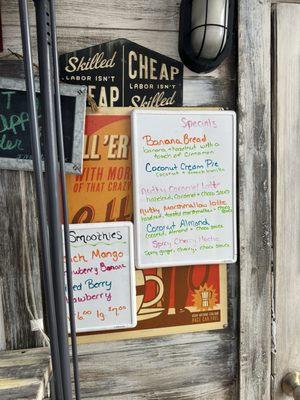 Skilled
LABOR ISN'T
CHEAP
CHEAP
LABOR ISN'T
Skilled
LL'ER
WITH MORE
OF THAT CRAZY
Specials
Banana Bread
banana + hazelnut with a
touch of cinnamon
Coconut Cream Pie
coconut + french vanilla
Nutty Caramel Latte
hazelnut, caramel + choco sauce
Nutty Marshmallow latte
hazelnut, toasted marshmallow +
choco sauce
Coconut Almond
Coconut, Almond + choco sauce
Spicy Cherry Mocha
Spicy ginger, cherry, choco sauce
Smoothies
ach Mango
awberry Banana
ed Berry
rawberry
6.00 lg $7.00
RACE CAR FREE